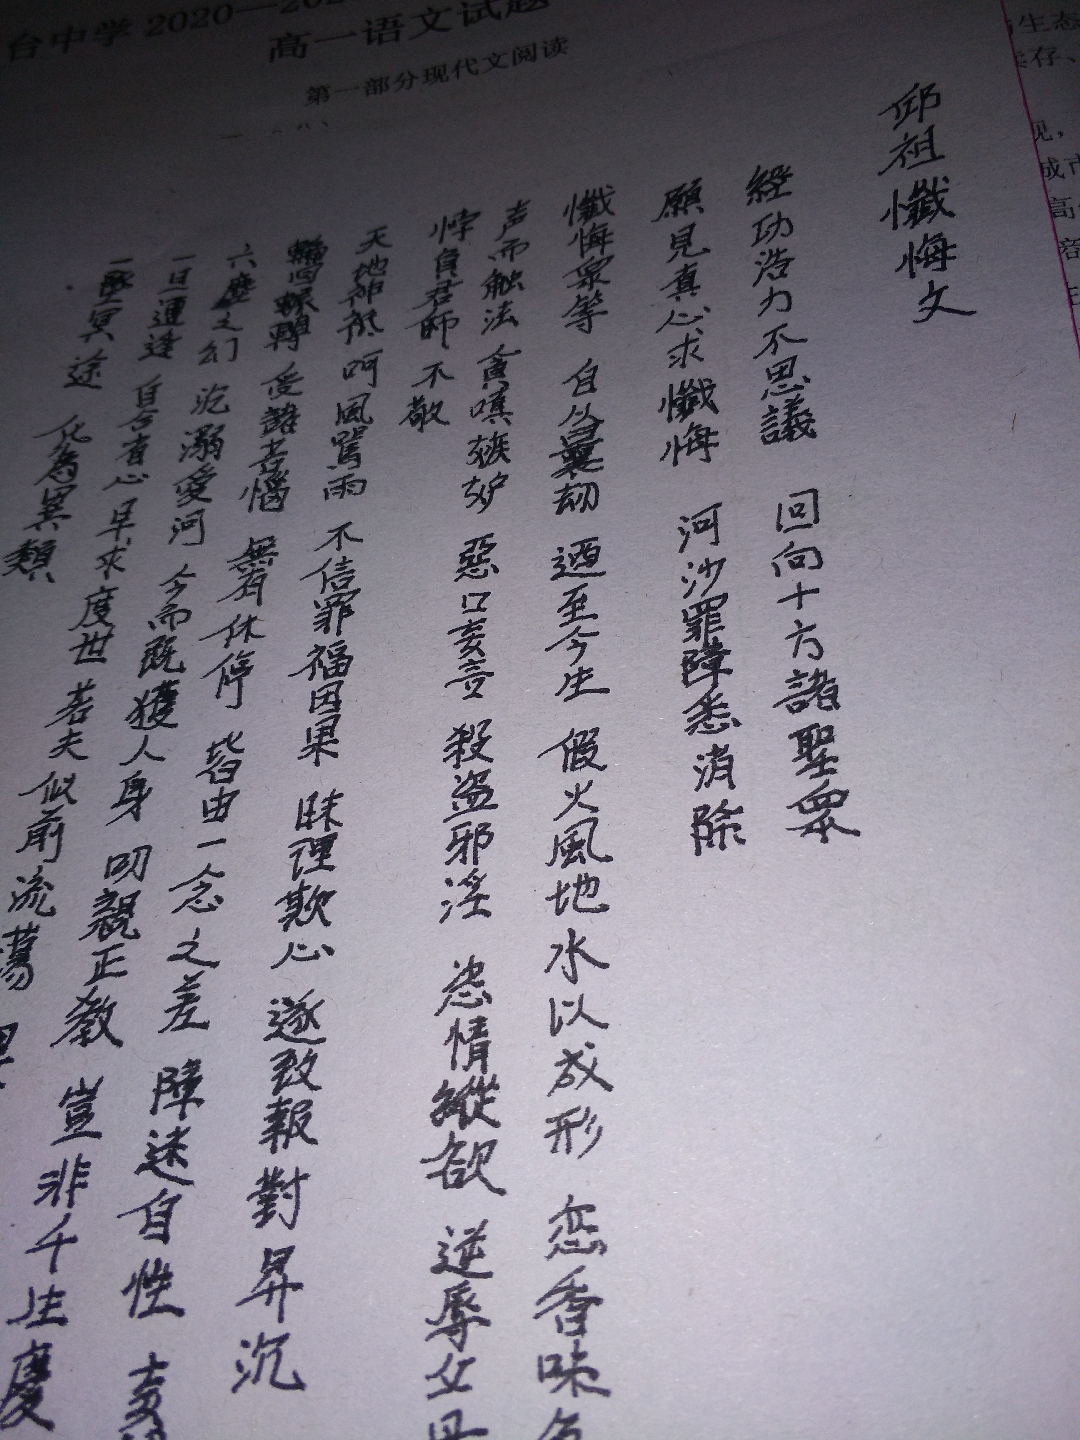 台中学 2020—202
高一语文试题
第一部分现代文阅读
邱祖懺悔文
經功浩力不思議 回向十方諸聖眾
願見真心求懺悔 河沙罪障悉消除
懺悔眾等 自从曩劫 迺至今生 假火風地水以成形 恋香味色
声而触法 貪嗔嫉妒 惡口妄言 殺盗邪淫 恣情縱欲 逆辱父母
悖負君師 不敬
天地神祇 呵風罵雨 不信罪福因果 昧理欺心 遂致報對昇沉
輪迴展轉 受諸苦惱 無有休停 皆由一念之差 障迷自性 妄認
六塵之幻 沉溺愛河 今而既獲人身 叨親正教 豈非千生慶
一旦通達 自合省心 早求度世 若夫似前流蕩
一墮冥途 化為異類
生态
存、
现，
成市
高
部